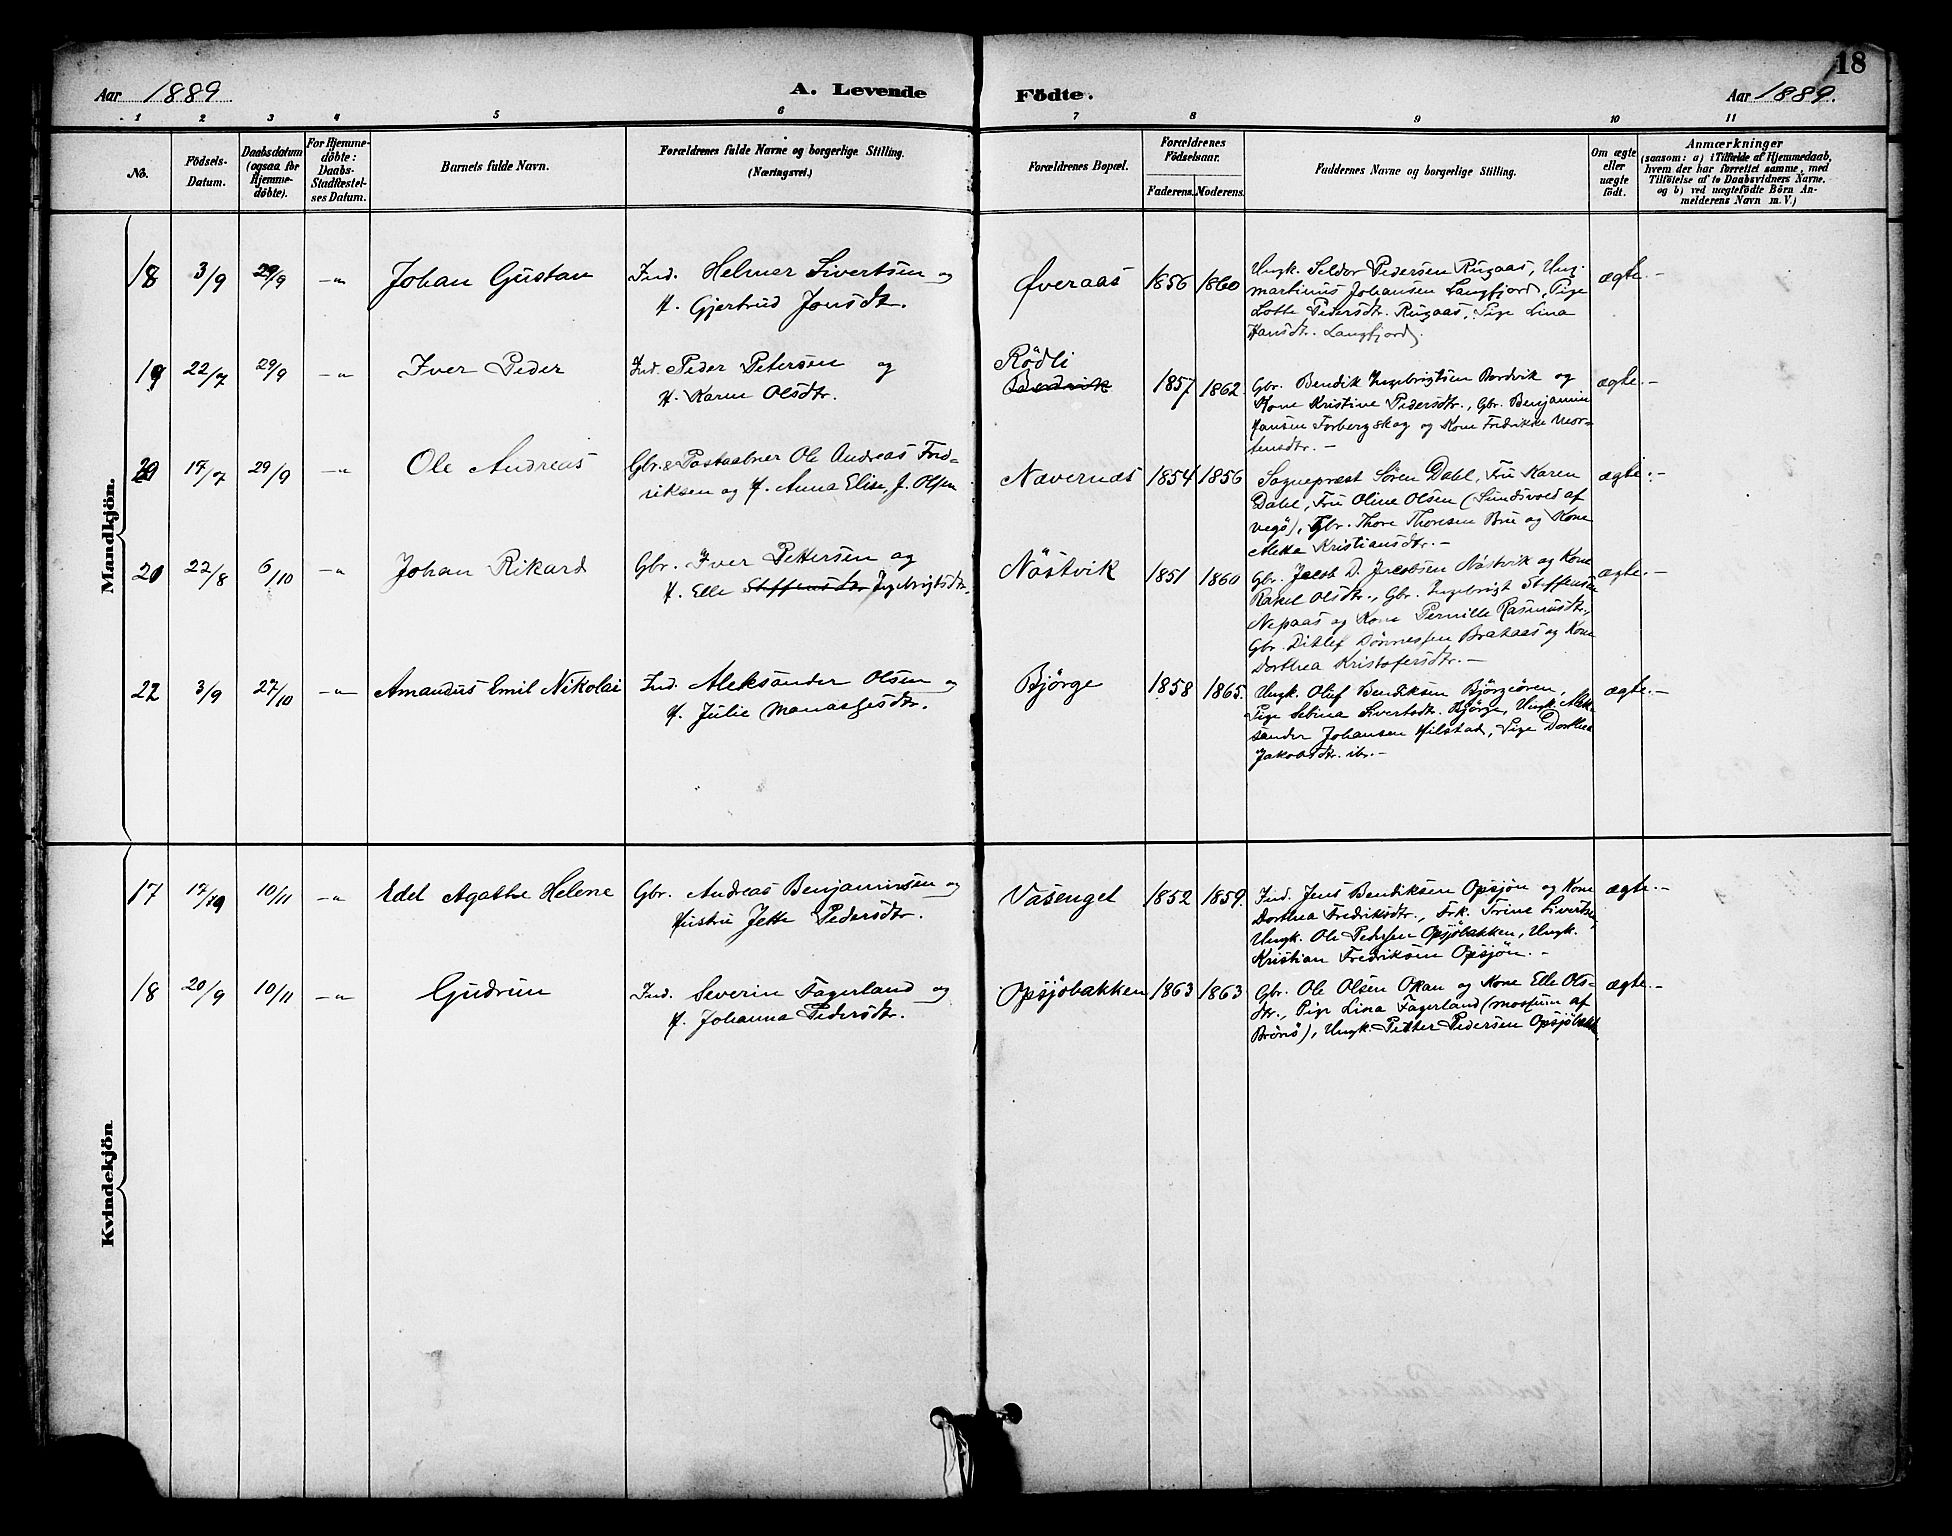 18
Aar 1889
A. Levende Födte.
Aar 1889.
1 2 3 4 5 6 7 8 9 10 11
No.
Födsels-
Datum.
Daabsdatum
(ogsaa for
Hjemme-
döbte).
For Hjemme-
döbte:
Daabs-
Stadfæstel-
ses Datum.
Barnets fulde Navn.
Forældrenes fulde Navne og borgerlige Stilling.
(Næringsvei.)
Forældrenes Bopæl.
Forældrenes
Födselsaar.
Faderens. Moderens.
Faddernes Navne og borgerlige Stilling.
Om ægte
eller
uægte
födt.
Anmærkninger
(saasom: a) i Tilfælde af Hjemmedaab,
hvem der har forrettet samme, med
Tilföielse af to Daabsvidners Navne.
og b) ved uægtefödte Börn An-
melderens Navn m. V.)
Mandkjön.
18 3/9 29/9 -„- Johan Gustav
Ind. Helmer Sivertsen og
H. Gjertrud Jonsdtr.
Øveraas 1856 1860
Ungk. Seldor Pedersen Rugaas, Ung.
martinus Johansen Langfjord, Pige
Lotte Pedersdtr. Rugaas, Pige Lina
Hansdtr. Langfjord.
ægte.-
19 22/7 29/9 -„- Iver Peder
Ind. Peder Petersen og
H. Karen Olsdtr.
Rödli
Bordvik
1857 1862.
Gbr. Bendik Ingebrigtsen Bordvik og
Kone Kristine Pedersdtr., Gbr. Benjamin
Jansen Forbergskog og Kone Fredrikke Mor-
tensdtr. -
ægte.-
20 17/7 29/9 -„- Ole Andreas
Gbr. & Postaabner Ole Andreas Fred-
riksen og H. Anna Elise, f. Olsen
Nævernæs 1854 1856
Sogneprest Sören Dahl, Fru Karen
Dahl, Fru Oline Olsen (Sundsvold af
Vegö), Gbr. Thore Thoresen Bru og Kone
Metta Kristiansdtr. -
ægte.-
20 22/8 6/10 -„- Johan Rikard
Gbr. Iver Pettersen og
H. Elle Steffensdtr Ingebrigtsdtr.
Nöstvik 1851 1860
Gbr. Jacob D. Jacobsen Nöstvik og Kone
Rakel Olsdtr., Gbr. Ingebrigt Steffensen
Nepaas og Kone Pernille Rasmusdtr.,
Gbr. Ditlef Dönnessen Brataas og Kone
Dorthea Kristofersdtr. -
ægte.-
22 3/9 27/10 -„- Amandus Emil Nikolai
Ind. Aleksander Olsen og
H. Julie Manassesdtr.
Bjørge 1858 1865.
Ungk. Oluf Bendiksen Bjørgeören,
Pige Sebina Sivertsdtr. Bjørge, Ungk. Alek-
sander Johansen Hilstad, Pige Dorthea
Jakobsdtr. ibr. -
ægte.-
Kvindekjön.
17 17/10 10/11 -„- Edel Agathe Helene
Gbr. Andreas Benjaminsen og
Hustru Jette Pedersdtr.
Vasenget 1852 1859.
Ind. Jens Bendiksen Opsjön og Kone
Dorthea Fredriksdtr., Frk. Trine Sivertsen,
Ungk. Ole Pedersen Opsjöbakken, Ungk.
Kristian Fredriksen Opsjön. -
ægte.-
18 20/9 10/11 -„- Gudrun
Ind. Severin Fagerland og
H. Johanna Pedersdtr.
Opsjöbakken 1863 1863
Gbr. Ole Olsen Okan og Kone Elle Ols-
dtr., Pige Lina Fagerland (mosheim af
Brönö), Ungk. Petter Pedersen Opsjöbakk.
ægte.-